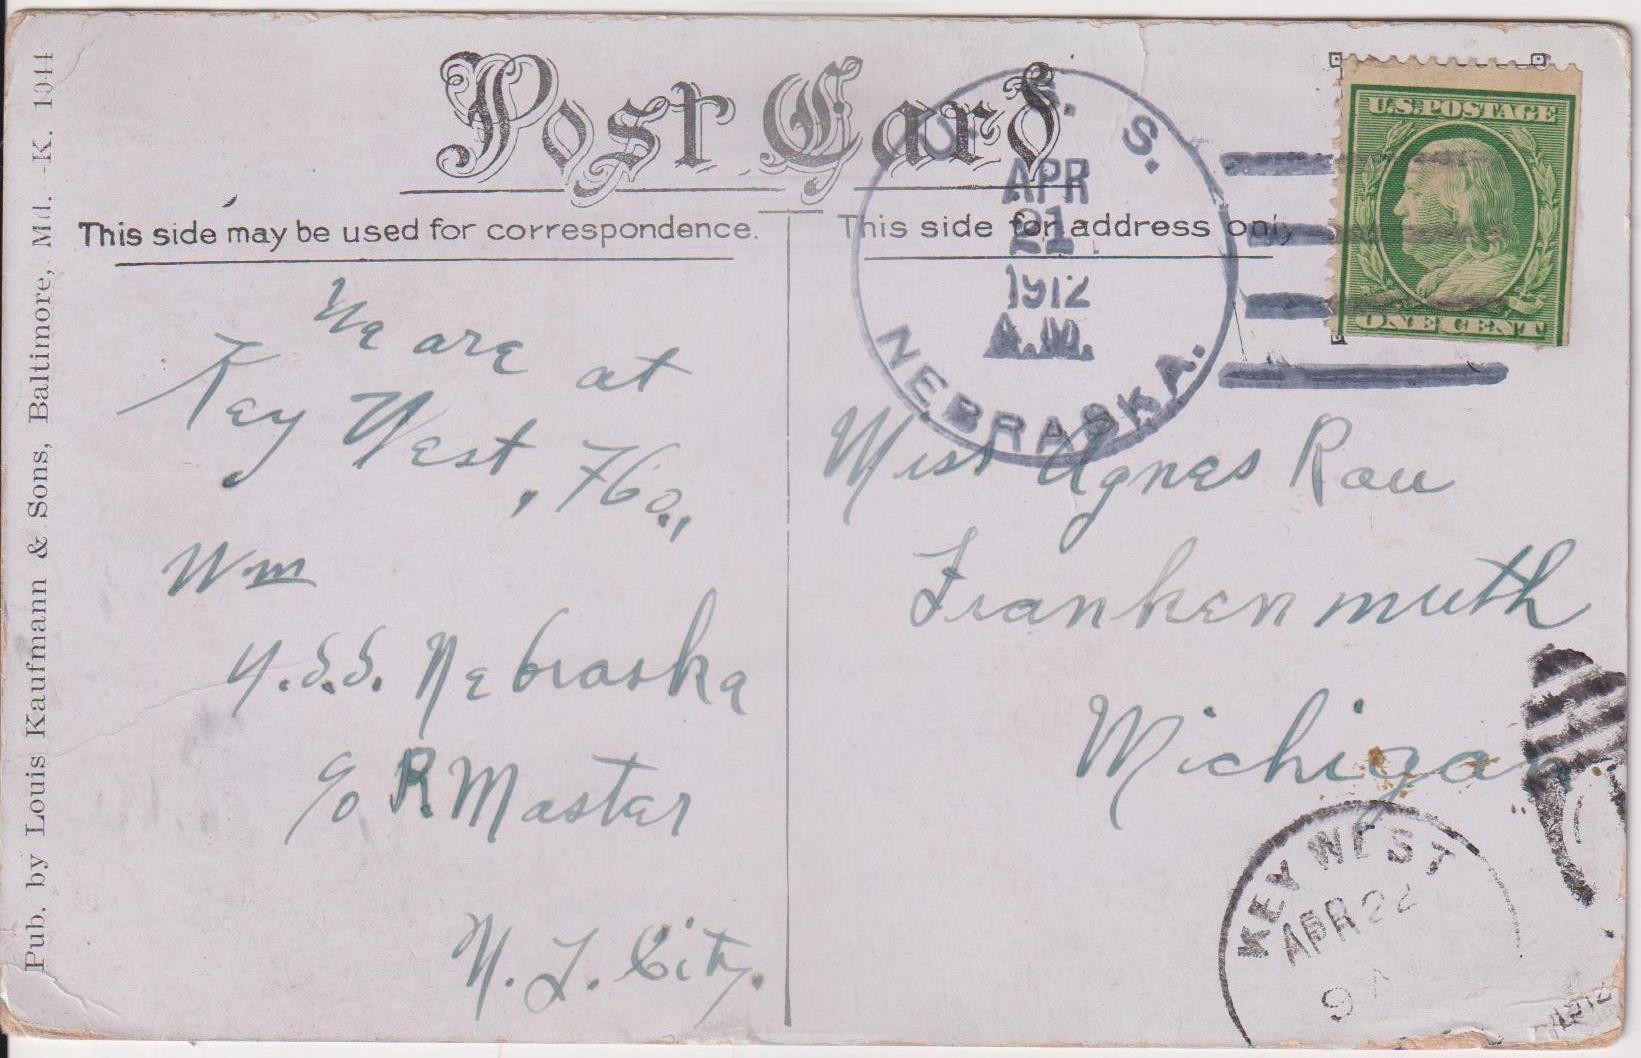 Post Card
This side may be used for correspondence.
This side for address only
Pub. by Louis Kaufmann & Sons, Baltimore, Md. -K. 1044
U. S. S.
APR
21
1912
A.M.
NEBRASKA.
U.S.POSTAGE
ONE CENT
We are at
Key West, Fla.,
Wm
U.S.S. Nebraska
c/o P. Master
N. Y. City.
Miss Agnes Rau
Frankenmuth
Michigan
KEY WEST
APR 22
9 A
1912